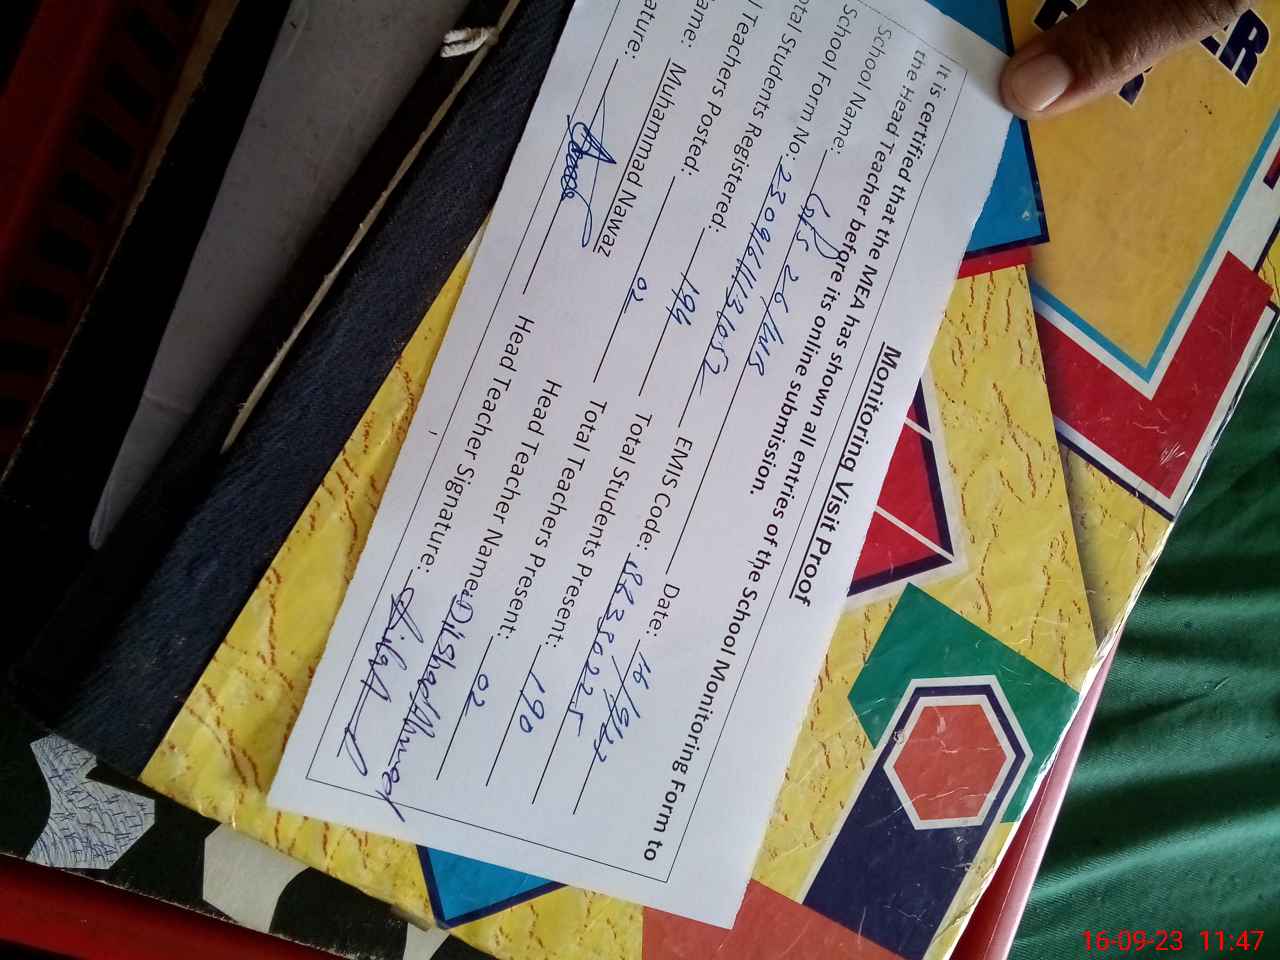 Monitoring Visit Proof
It is certified that the MEA has shown all entries of the School Monitoring Form to
the Head Teacher before its online submission.
School Name: 26/WB Date: 16/9/23
School Form No: 2309161131052 EMIS Code:
otal Students Registered: 194 Total Students Present: 190
l Teachers Posted: 02 Total Teachers Present: 02
ame: Muhammad Nawaz Head Teacher Name: Dilshad Ahmed
ature: Head Teacher Signature:
ER
16-09-23 11:47